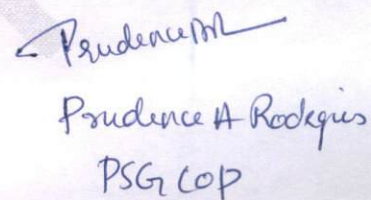 PrudenceAR
Prudence A Rodrgius
PSG COP